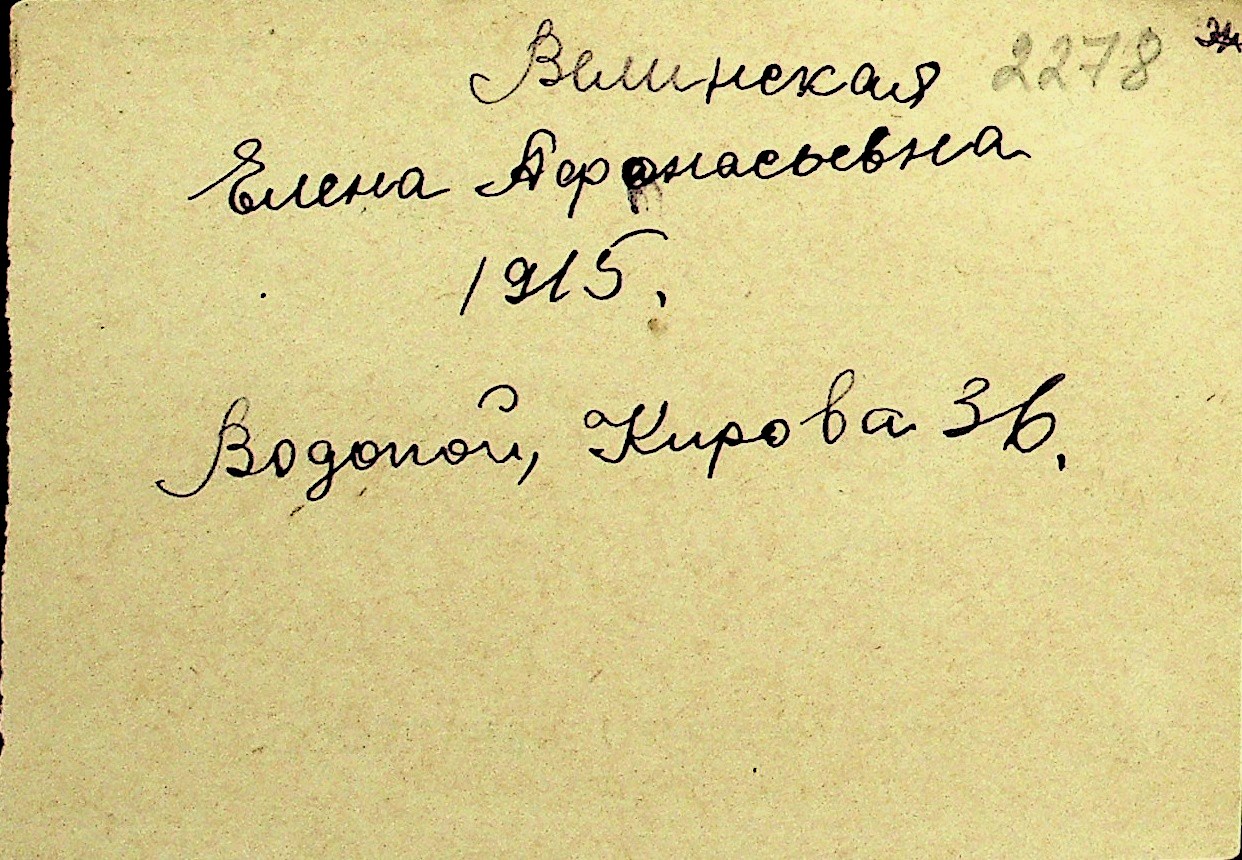 Велинская 2278
Елена Афанасьевна
1915.
Водопой, Кирова 36.